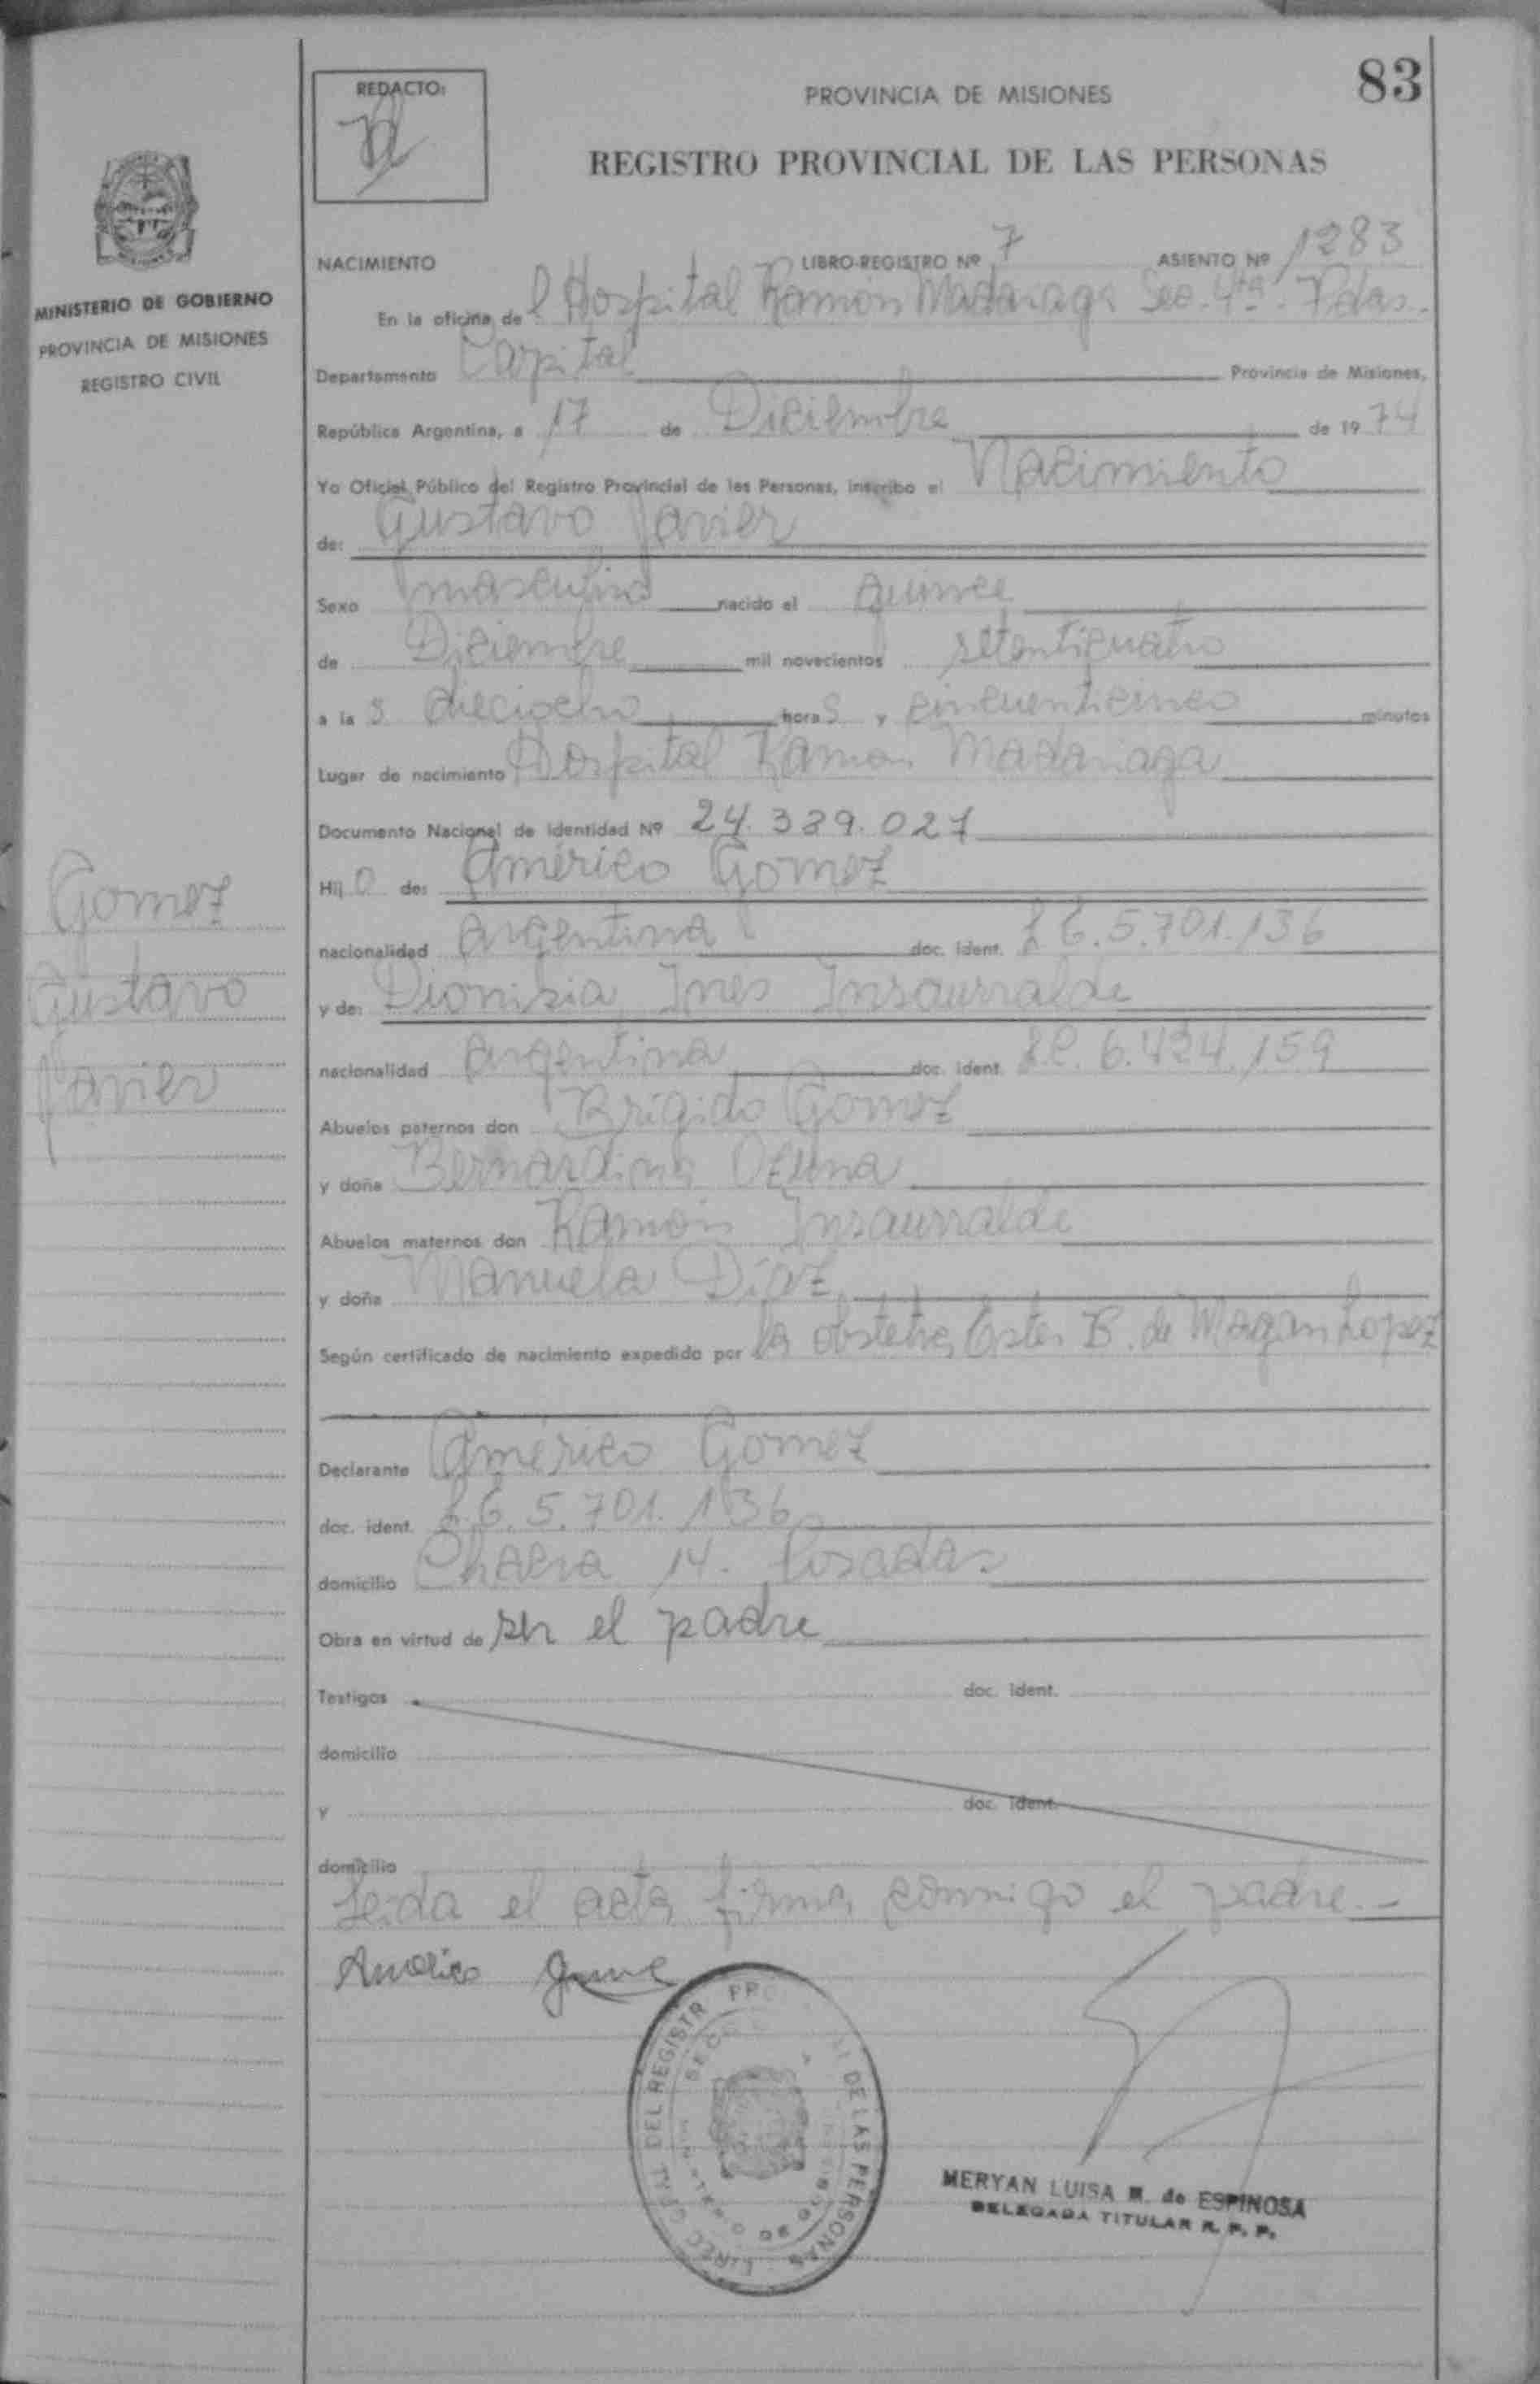 83
REDACTO:
PROVINCIA DE MISIONES
REGISTRO PROVINCIAL DE LAS PERSONAS
MINISTERIO DE GOBIERNO
PROVINCIA DE MISIONES
REGISTRO CIVIL
NACIMIENTO LIBRO-REGISTRO Nº 7 ASIENTO Nº 1283
En la oficina de l Hospital Ramón Madariaga Sec. 4ta. Pdas.
Departamento Capital Provincia de Misiones,
República Argentina, a 17 de Diciembre de 1974
Yo Oficial Público del Registro Provincial de las Personas, inscribo el Nacimiento
de: Gustavo Javier
Sexo masculino nacido el quince
de Diciembre mil novecientos setenticuatro
a la s dieciocho horas y cincuenticinco minutos
Lugar de nacimiento Hospital Ramon Madariaga
Documento Nacional de Identidad Nº 24.339.027
Hijo de: Américo Gomez
nacionalidad Argentina doc. ident. L E. 5.701.136
y de: Dionisia Inés Insaurralde
nacionalidad Argentina doc. ident. L.C. 6.424.159
Abuelos paternos don Brígido Gomez
y doña Bernardina Ozuna
Abuelos maternos don Ramón Insaurralde
y doña Manuela Díaz
Según certificado de nacimiento expedido por la obstetra Ester B. de Magan Lopez
Declarante Américo Gomez
doc. ident. L.E. 5.701.136
domicilio Chacra 14. Posadas
Obra en virtud de ser el padre
Testigos doc. ident.
domicilio
y doc. ident.
domicilio
Leida el acta firma conmigo el padre.-
Americo
Gomez
Gustavo
Javier
DIREC GRAL DEL REGISTR PRO AL DE LAS PERSONAS
MERYAN LUISA M. de ESPINOSA
DELEGADA TITULAR R. P. P.